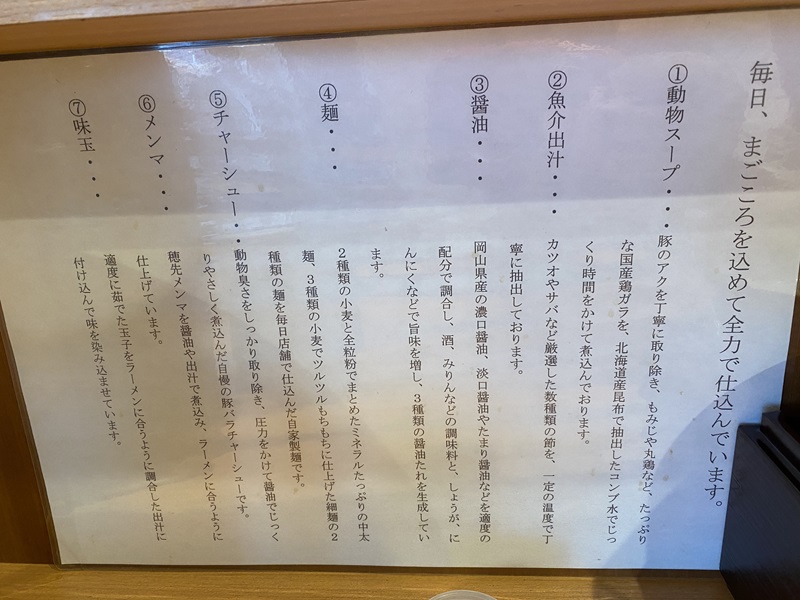 毎日、まごころを込めて全力で仕込んでいます。
①動物スープ・・・豚のアクを丁寧に取り除き、もみじや丸鶏など、たっぷり
な国産鶏ガラを、北海道産昆布で抽出したコンブ水でじっ
くり時間をかけて煮込んでおります。
②魚介出汁・・・カツオやサバなど厳選した数種類の節を、一定の温度で丁
寧に抽出しております。
③醤油・・・岡山県産の濃口醤油、淡口醤油やたまり醤油などを適度の
配分で調合し、酒、みりんなどの調味料と、しょうが、に
んにくなどで旨味を増し、3種類の醤油たれを生成してい
ます。
④麺・・・2種類の小麦と全粒粉でまとめたミネラルたっぷりの中太
麺、3種類の小麦でツルツルもちもちに仕上げた細麺の2
種類の麺を毎日店舗で仕込んだ自家製麺です。
⑤チャーシュー・・動物臭さをしっかり取り除き、圧力をかけて醤油でじっく
りやさしく煮込んだ自慢の豚バラチャーシューです。
⑥メンマ・・・穂先メンマを醤油や出汁で煮込み、ラーメンに合うように
仕上げています。
⑦味玉・・・適度に茹でた玉子をラーメンに合うように調合した出汁に
付け込んで味を染み込ませています。